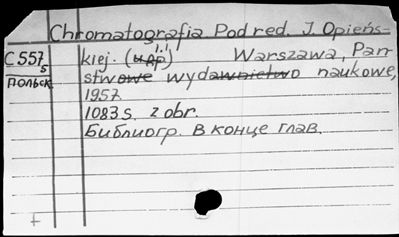 Chromatografia Pod red. J. Opieńs-
C557 kiej. (и др.) Warszawa, Pań
s stwowe wydawnictwo naukowe,
польск 1957
1083 s. z obr.
Библиогр. в конце глав.